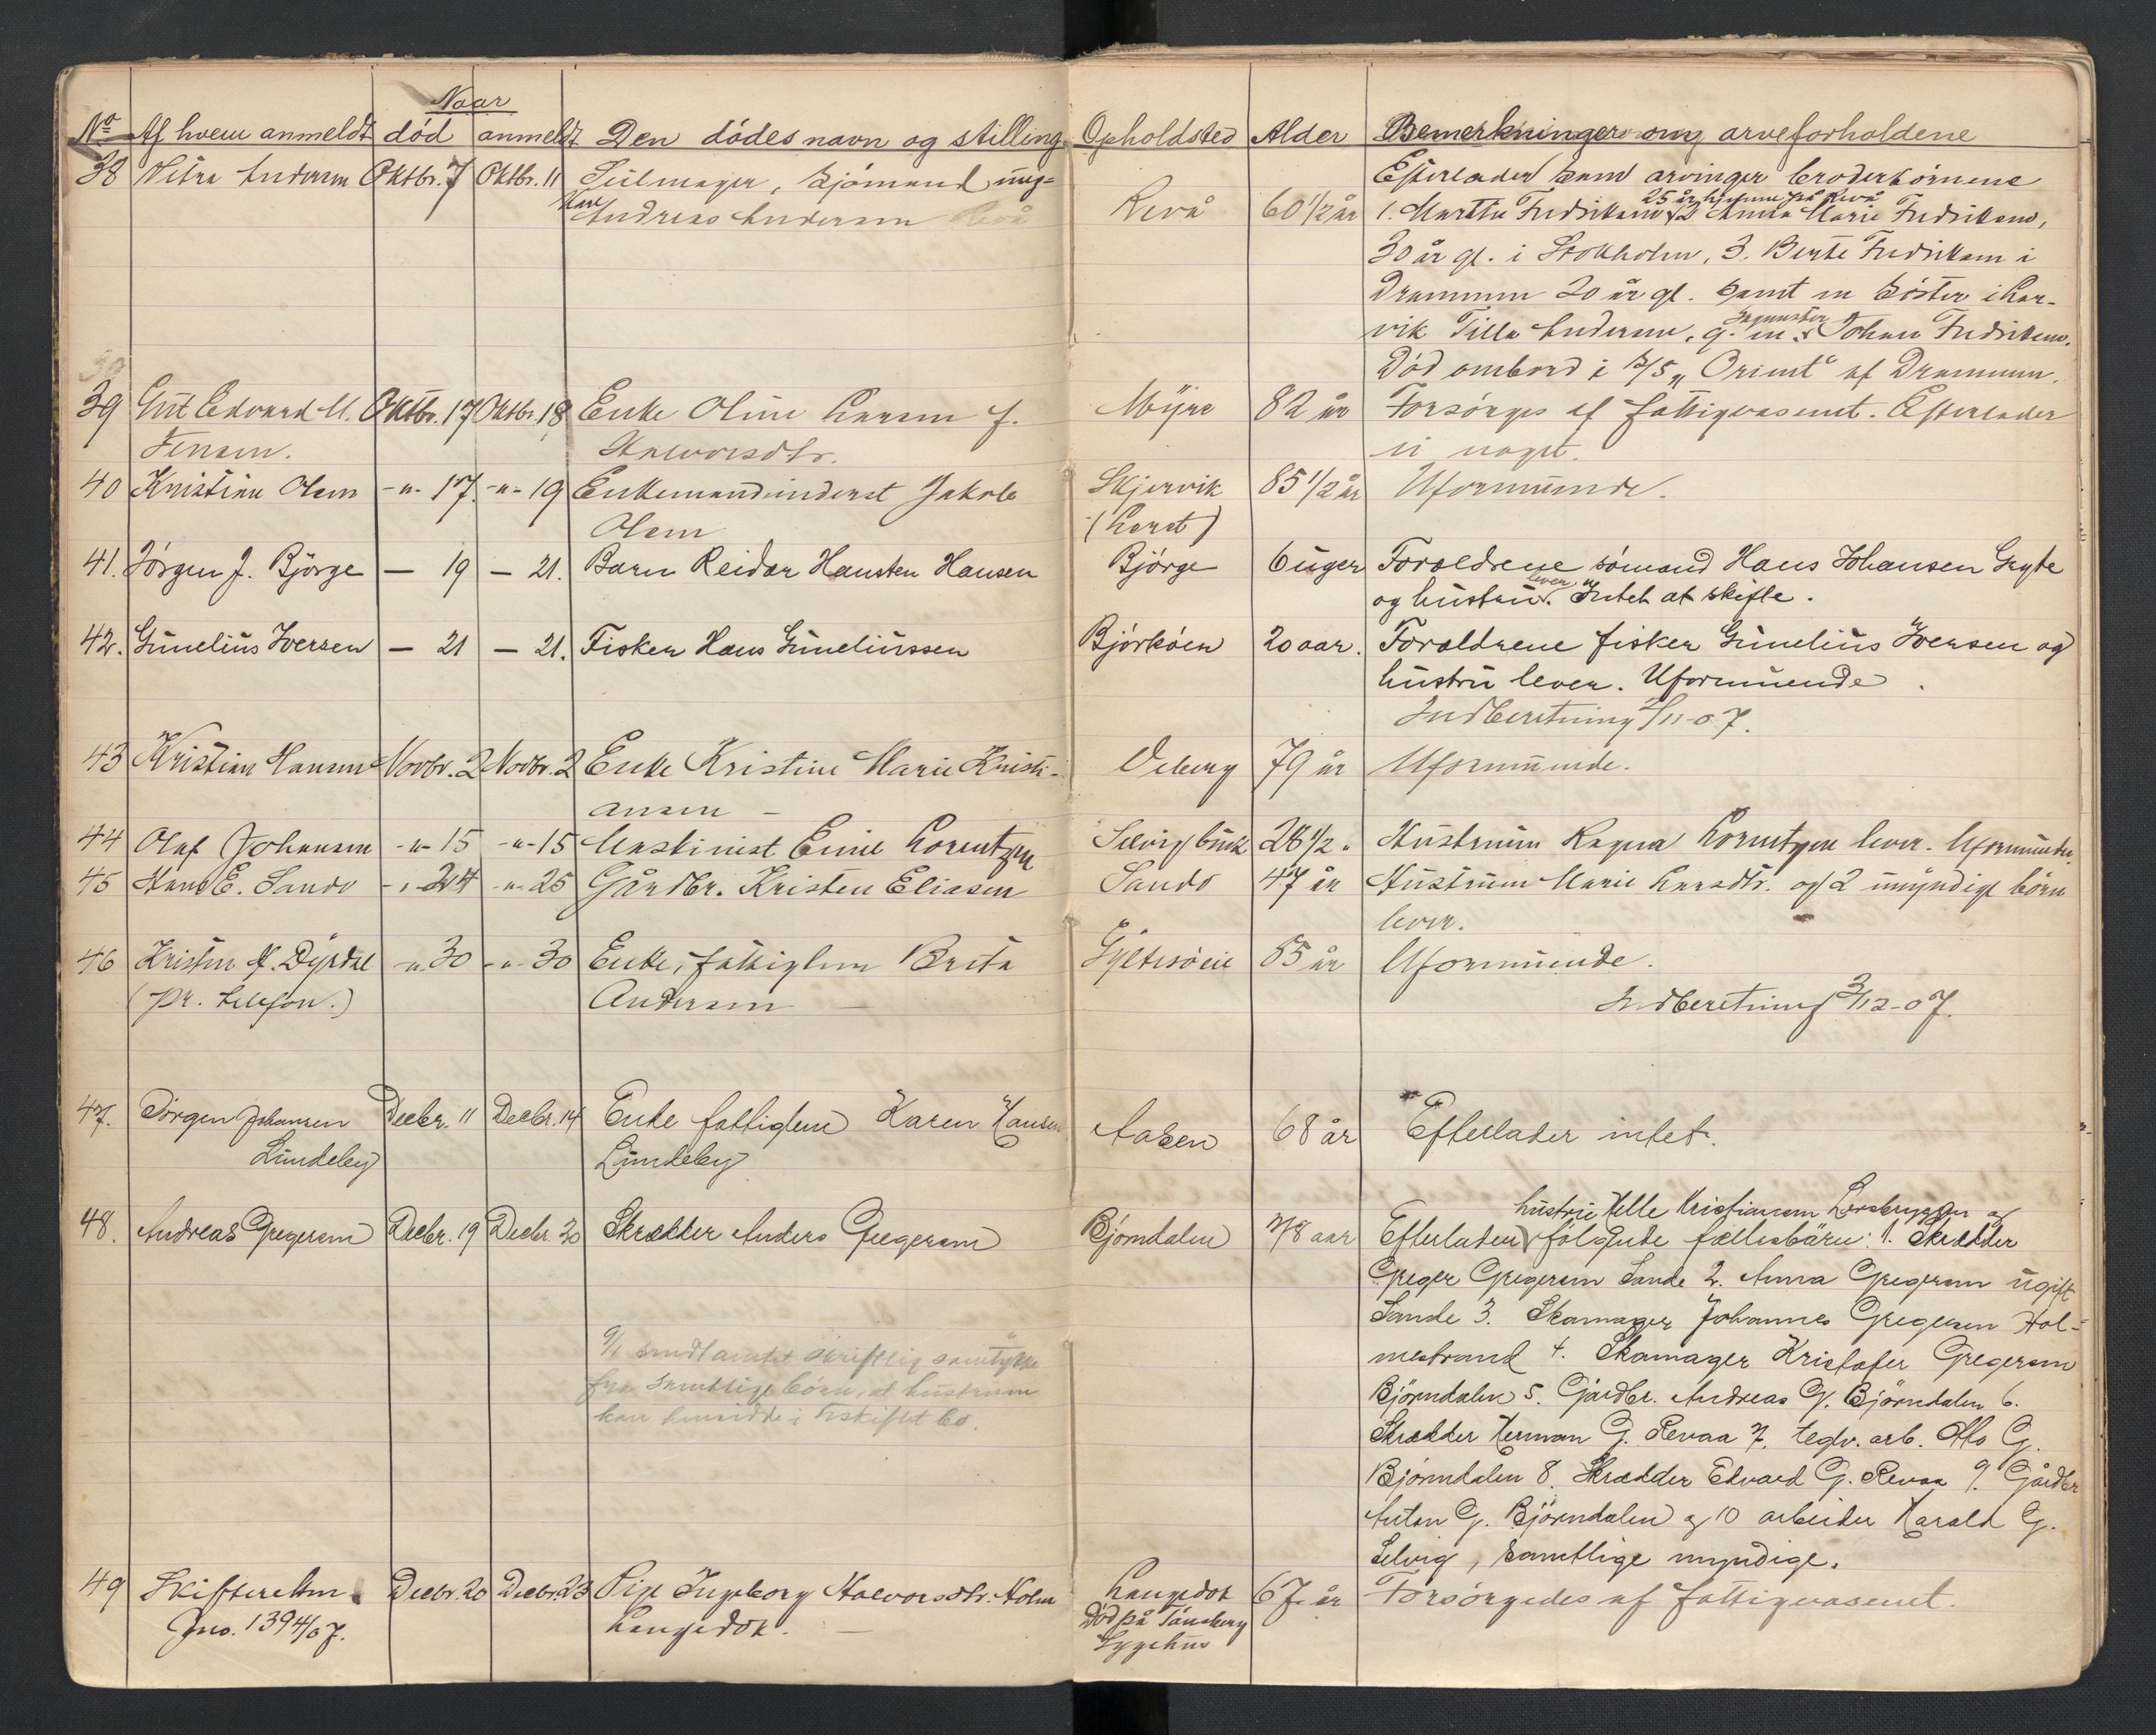 Naar
No Af hvem anmeldt død anmeldt Den dødes navn og stilling Opholdsted Alder Bemerkninger om arveforholdene
38 Petra Andersen Oktbr. 7 Oktbr. 11 Seilmager, sjømand ung-
kar Andreas Andersen Revå
Revå 60 1/2 år
Efterlader som arvinger broderbørnene
25 år hjemme på Revå
1. Martha Fredriksen 2 Anna Marie Fredriksen,
30 år gl. i Stokholm, 3. Berte Fredriksen i
Drammen 20 år gl. samt en søster i Lar-
vik Tilla Andersen, g. m. Johan Fredriksen.
Død ombord i S/S „Orient" af Drammen.
39 Gut Edvard M. Oktbr. 17 Oktbr. 18 Enke Oline Larsen f. Myre 82 år Forsørges af fattigvæsenet. Efterlader
Jensen. Halvorsdtr. ei noget.
40 Kristine Olsen -"- 17. -"- 19 Enkemand inderst Jakob Skjervik 85 1/2 år Uformuende.
Olsen
41. Jörgen J. Björge — 19 — 21. Barn Reidar Hansten Hansen Bjørge 6 uger Forældrene sømand Hans Johansen Gryte
og hustru lever. Intet at skifte.
42. Gunelius Iversen — 21 — 21. Fisker Hans Guneliussen Bjørkøen 20 aar. Forældrene fisker Gunelius Iversen og
hustru lever. Uformuende.
Indberetning 2/11-07.
43 Kristian Hansen Novbr. 2 Novbr. 2 Enke Kristine Marie Kristi- 79 år Uformuende.
ansen –
44 Olaf Johansen -"- 15 -"- 15 Maskinist Emil Lorentzen Selvig 28 1/2 " Hustruen Ragna Lorentzen lever. Uformuende.
45 Hans E. Sando -"- 24 -"- 25 Gårdbr. Kristen Eliasen Sando 47 år Hustruen Marie Larsdtr. og 2 umyndige børn
lever.
46 Kristen A. Dyrdal -"- 30 -"- 30 Enke, fattiglem Berta 85 år Uformuende.
(pr. telefon.) Andersen —
Indberetning 3/12-07.
47. Jørgen Johansen Decbr. 11 Decbr. 14 Enke fattiglem Karen Hansen Aasen 68 år Efterlader intet.
Lundeby Lundeby
48. Andreas Gregersen Decbr. 19 Decbr. 20 Skrædder Anders Gregersen Bjørndalen 78 aar
hustru Helle Kristiansen og
Efterlader følgende fællesbärn: 1. Skrædder
Greger Gregersen Sande 2. Anna Gregersen ugift
Sande 3. Skomager Johannes Gregersen Hol-
mestrand 4. Skomager Kristofer Gregersen
Björndalen 5. Gårdbr. Andreas G. Björndalen 6.
Skrædder Herman G. Revaa 7. teglv. arb. Otto G.
Bjørndalen 8. Skrædder Edvard G. Revaa 9. Gårdbr
Anton G. Björndalen og 10 arbeider Harald G.
Selvig, samtlige myndige.
9/1 skriftlig samtykke
fra samtlige børn, at hustruen
kan hensidde i uskiftet bo.
49 Skifteretten Decbr. 20 Decbr. 23 Pige Ingeborg Halvorsdtr. Holm Langedok 67 år Forsørgedes af fattigvæsenet.
Jno. 1394/07. Langedok. — Död på Tönsberg
Sygehus